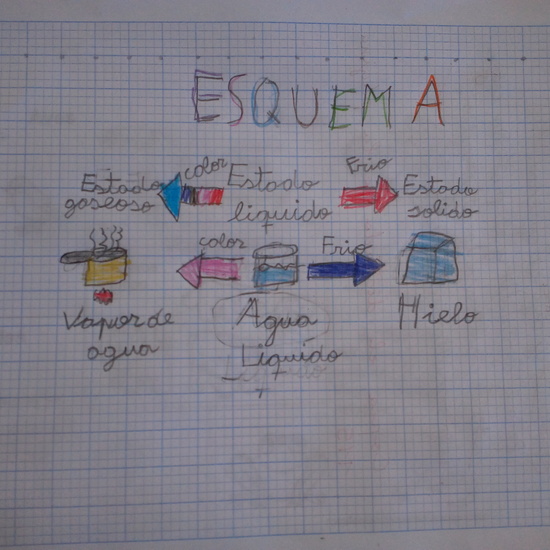 ESQUEMA
Estado gaseoso
color
Estado líquido
Frio
Estado solido
color
Frio
Vapor de agua
Agua Liquido
Hielo